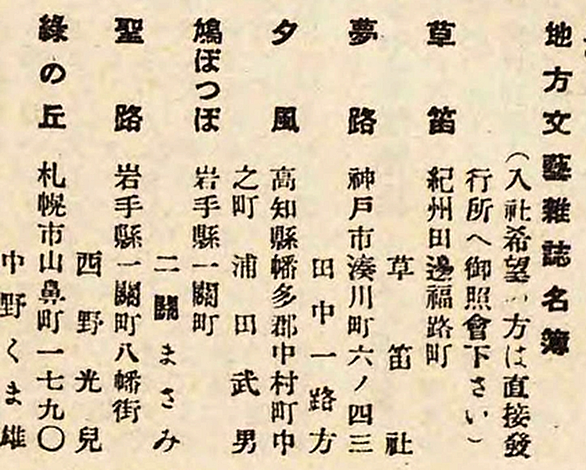 地方文藝雜誌名簿
(入社希望の方は直接發
行所へ御照會下さい)
草笛 紀州田邊福路町
草笛社
夢路 神戸市湊川町六ノ四三
田中一路方
夕風 高知縣幡多郡中村町中
之町 浦田武男
鳩ぽつぽ 岩手縣一關町
二關まさみ
聖路 岩手縣一關町八幡街
西野光兒
綠の丘 札幌市山鼻町一七九〇
中野くま雄